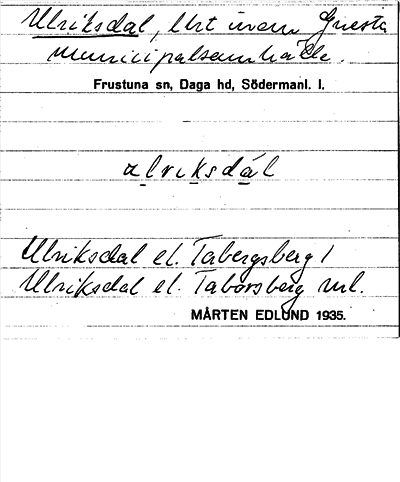 Ulriksdal, lht inom Gnesta
municipalsamhälle.
Frustuna sn, Daga hd, Södermanl. l.
ulriksdál
Ulriksdal el. Tabergsberg 1
Ulriksdal el. Taborsberg jnl.
MÅRTEN EDLUND 1935.